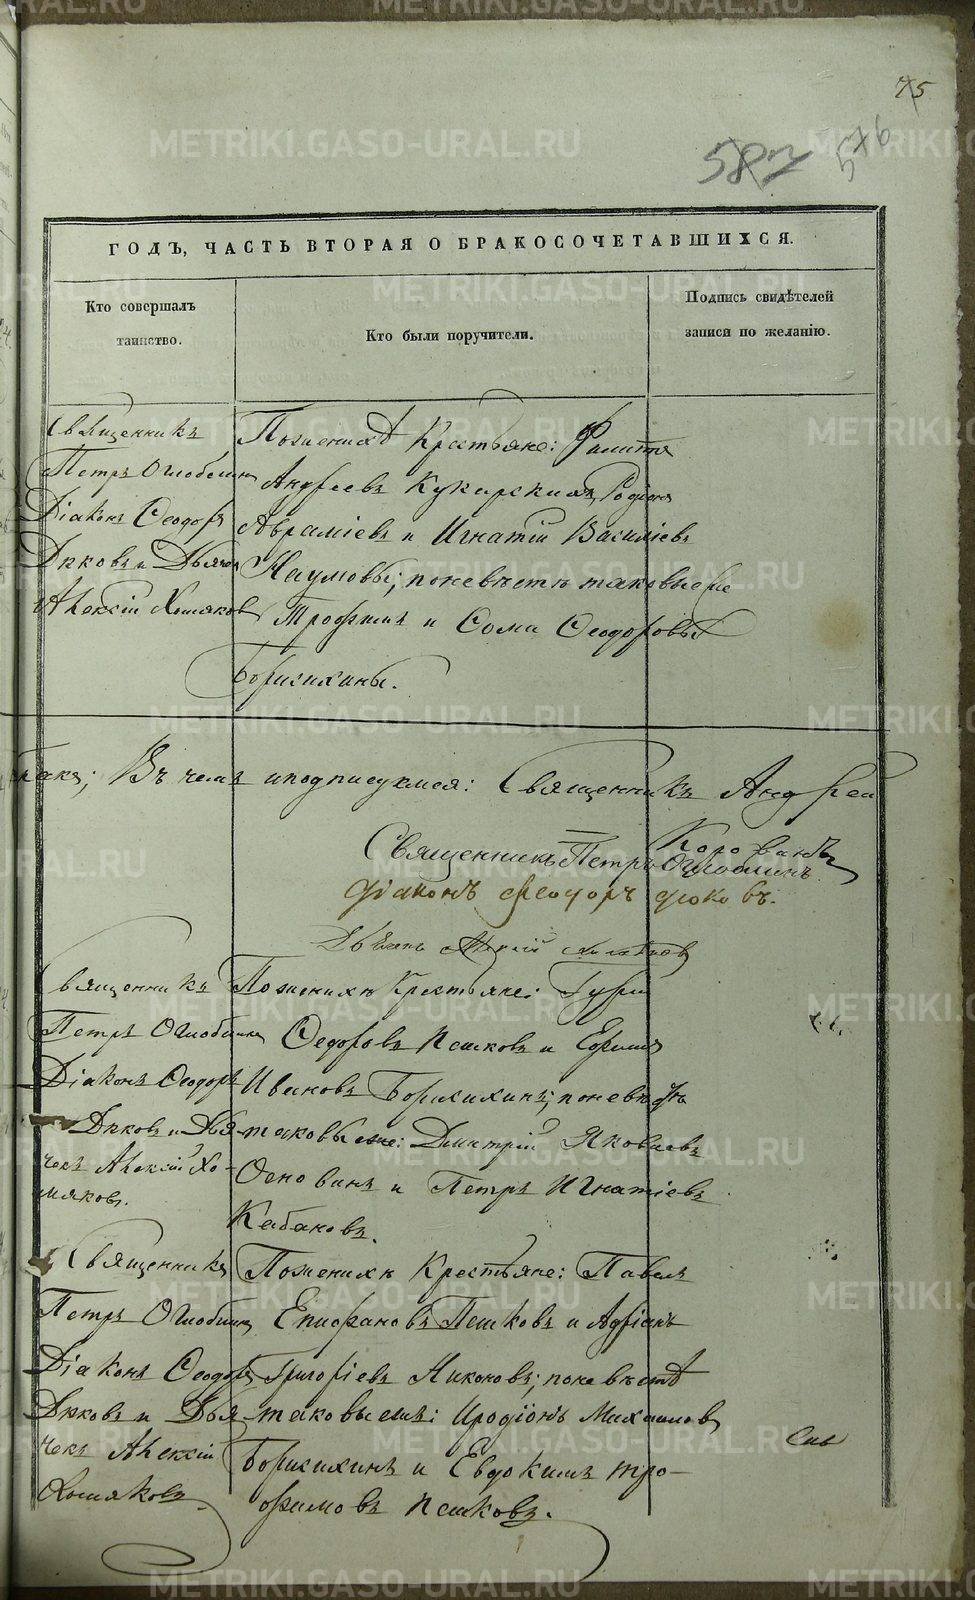 75
587
576
ГОДЪ, ЧАСТЬ ВТОРАЯ О БРАКОСОЧЕТАВШИХСЯ.
Кто совершалъ таинство.
Кто были поручители.
Подпись свидѣтелей записи по желанію.
Священникъ
Петръ Оглоблинъ
Діаконъ Ѳеодоръ
Дюковъ и Дьячекъ
Алексій Хомяковъ
По женихѣ Крестьяне: Филиппъ
Андреевъ Кукарскихъ, Родіонъ
Авраміевъ и Игнатій Василіевъ
Наумовы; по невѣстѣ таковые же
Трофимъ и Сома Ѳеодоровы
Борисихины.
браке; Въ чемъ и подписуемся: Священникъ Андрей
Короваевъ
Священникъ Петръ Оглоблинъ
Діаконъ Ѳеодоръ Дюковъ.
Дьячекъ Алексій Хомяковъ
Священникъ
Петръ Оглоблинъ
Діаконъ Ѳеодоръ
Дюковъ и Дья-
чекъ Алексій Хо-
мяковъ.
По женихѣ Крестьяне: Гурій
Ѳедоровъ Пешковъ и Ефимъ
Ивановъ Борисихинъ; по невѣстѣ
таковые же: Дмитрій Яковлевъ
Осноинъ и Петръ Игнатіевъ
Кабаковъ.
Священникъ
Петръ Оглоблинъ
Діаконъ Ѳеодоръ
Дюковъ и Дья-
чекъ Алексій
Хомяковъ
По женихѣ Крестьяне: Павелъ
Епифановъ Пешковъ и Адріанъ
Григоріевъ Никоновъ; по невѣстѣ
таковые же: Иродіонъ Михаиловъ
Борисихинъ и Евдокимъ Тро-
фимовъ Пешковъ.
METRIKI.GASO-URAL.RU